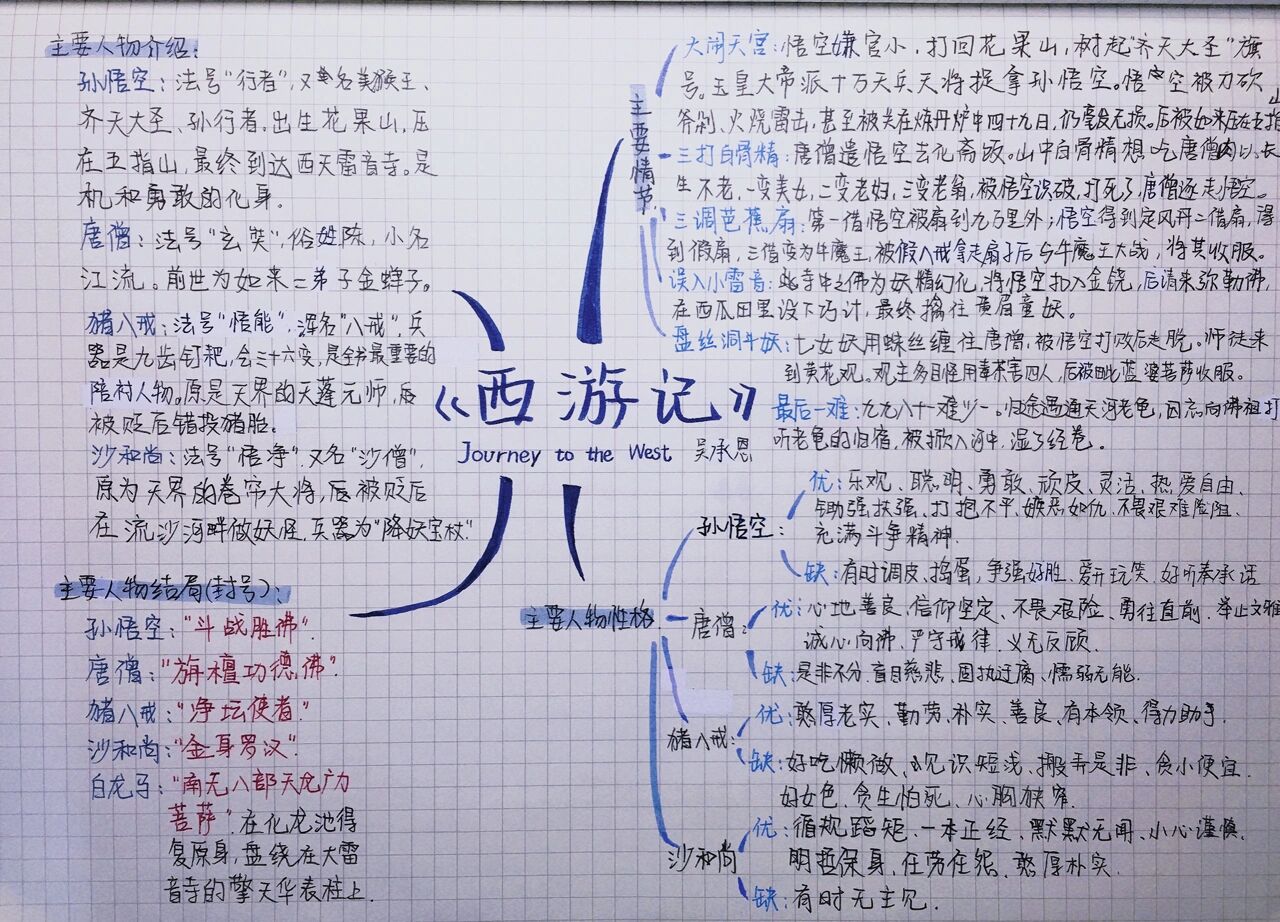 主要人物介绍:
孙悟空:法号"行者",又名美猴王、
齐天大圣、孙行者。出生花果山,压
在五指山,最终到达西天雷音寺。是
机和勇敢的化身。
唐僧:法号"玄奘",俗姓陈,小名
江流。前世为如来二弟子金蝉子。
猪八戒:法号"悟能",浑名"八戒",兵
器是九齿钉耙,会三十六变,是全书最重要的
陪衬人物。原是天界的天蓬元帅,后
被贬后错投猪胎。
沙和尚:法号"悟净",又名"沙僧",
原为天界的卷帘大将,后被贬后
在流沙河畔做妖怪,兵器为"降妖宝杖"
主要人物结局(封号):
孙悟空:"斗战胜佛".
唐僧:"旃檀功德佛".
猪八戒:"净坛使者."
沙和尚:"金身罗汉".
白龙马:"南无八部天龙广力
菩萨".在化龙池得
复原身,盘绕在大雷
音寺的擎天华表柱上.
《西游记》
Journey to the West 吴承恩
主要情节
大闹天宫:悟空嫌官小,打回花果山,树起"齐天大圣"旗
号。玉皇大帝派十万天兵天将捉拿孙悟空。悟空被刀砍
斧剁、火烧雷击,甚至被关在炼丹炉中四十九日,仍毫发无损。后被如来压在五指
山
三打白骨精:唐僧遣悟空去化斋饭。山中白骨精想吃唐僧肉以长
生不老,一变美女,二变老妇,三变老翁,被悟空识破,打死了,唐僧逐走悟空。
三调芭蕉扇:第一借悟空被扇到九万里外;悟空得到定风丹二借扇,得
到假扇,三借变为牛魔王,被假八戒拿走扇子后与牛魔王大战,将其收服。
误入小雷音:此寺中之佛为妖精幻化,将悟空扣入金铙,后请来弥勒佛,
在西瓜田里设下巧计,最终擒住黄眉童妖.
盘丝洞斗妖:七女妖用蛛丝缠住唐僧,被悟空打败后走脱。师徒来
到黄花观。观主多目怪用毒茶害四人,后被毗蓝婆菩萨收服。
最后一难:九九八十一难少一。归途遇通天河老龟,因忘向佛祖打
听老龟的归宿,被掀入河中,湿了经卷。
主要人物性格
孙悟空:
优:乐观、聪明、勇敢、顽皮、灵活、热爱自由、
锄强扶强、打抱不平、嫉恶如仇、不畏艰难险阻、
充满斗争精神.
缺:有时调皮、捣蛋,争强好胜、爱开玩笑、好听奉承话
唐僧:
优:心地善良、信仰坚定、不畏艰险、勇往直前、举止文雅
诚心向佛、严守戒律、义无反顾.
缺:是非不分、盲目慈悲、固执迂腐、懦弱无能.
猪八戒:
优:憨厚老实、勤劳、朴实、善良、有本领、得力助手.
缺:好吃懒做、见识短浅、搬弄是非、贪小便宜
好女色、贪生怕死、心胸狭窄.
沙和尚
优:循规蹈矩、一本正经、默默无闻、小心谨慎、
明哲保身、任劳任怨、憨厚朴实.
缺:有时无主见.